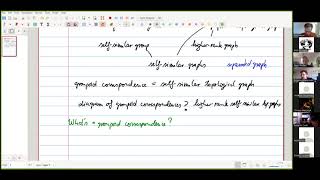 self-similar group higher-rank graph
self-similar graphs
groupoid correspondence = self-similar topological graph
diagram of groupoid correspondences? higher rank self-similar
What's a groupoid correspondence?